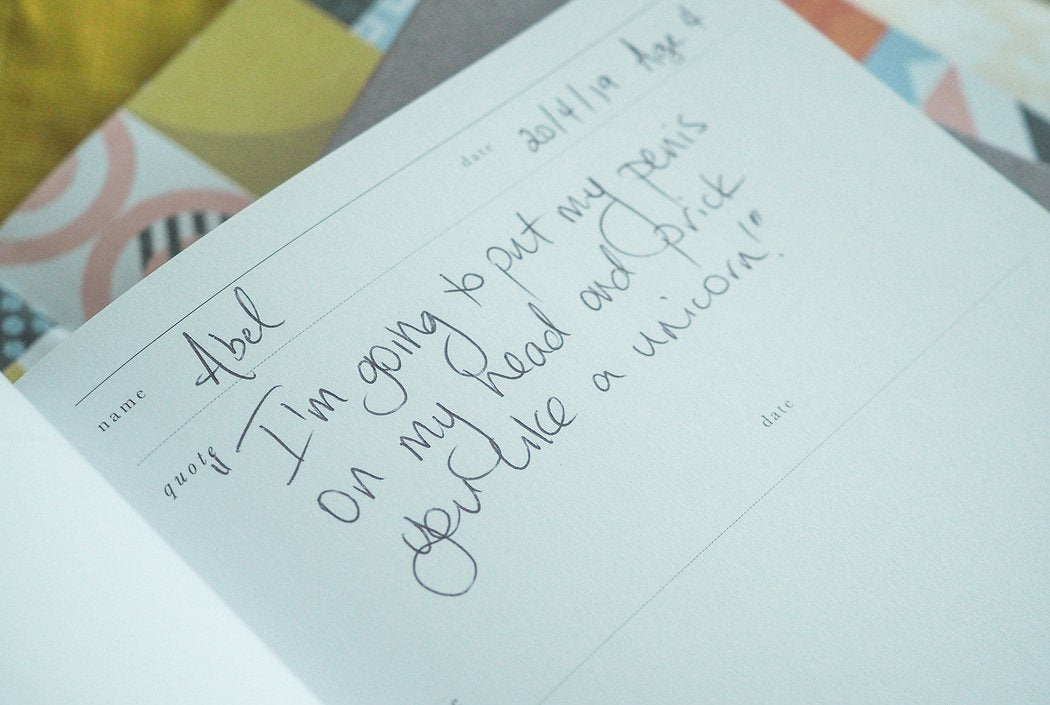 name Abel date 20/4/19 Age 4
quote "I'm going to put my penis
on my head and prick
you like a unicorn!"
date